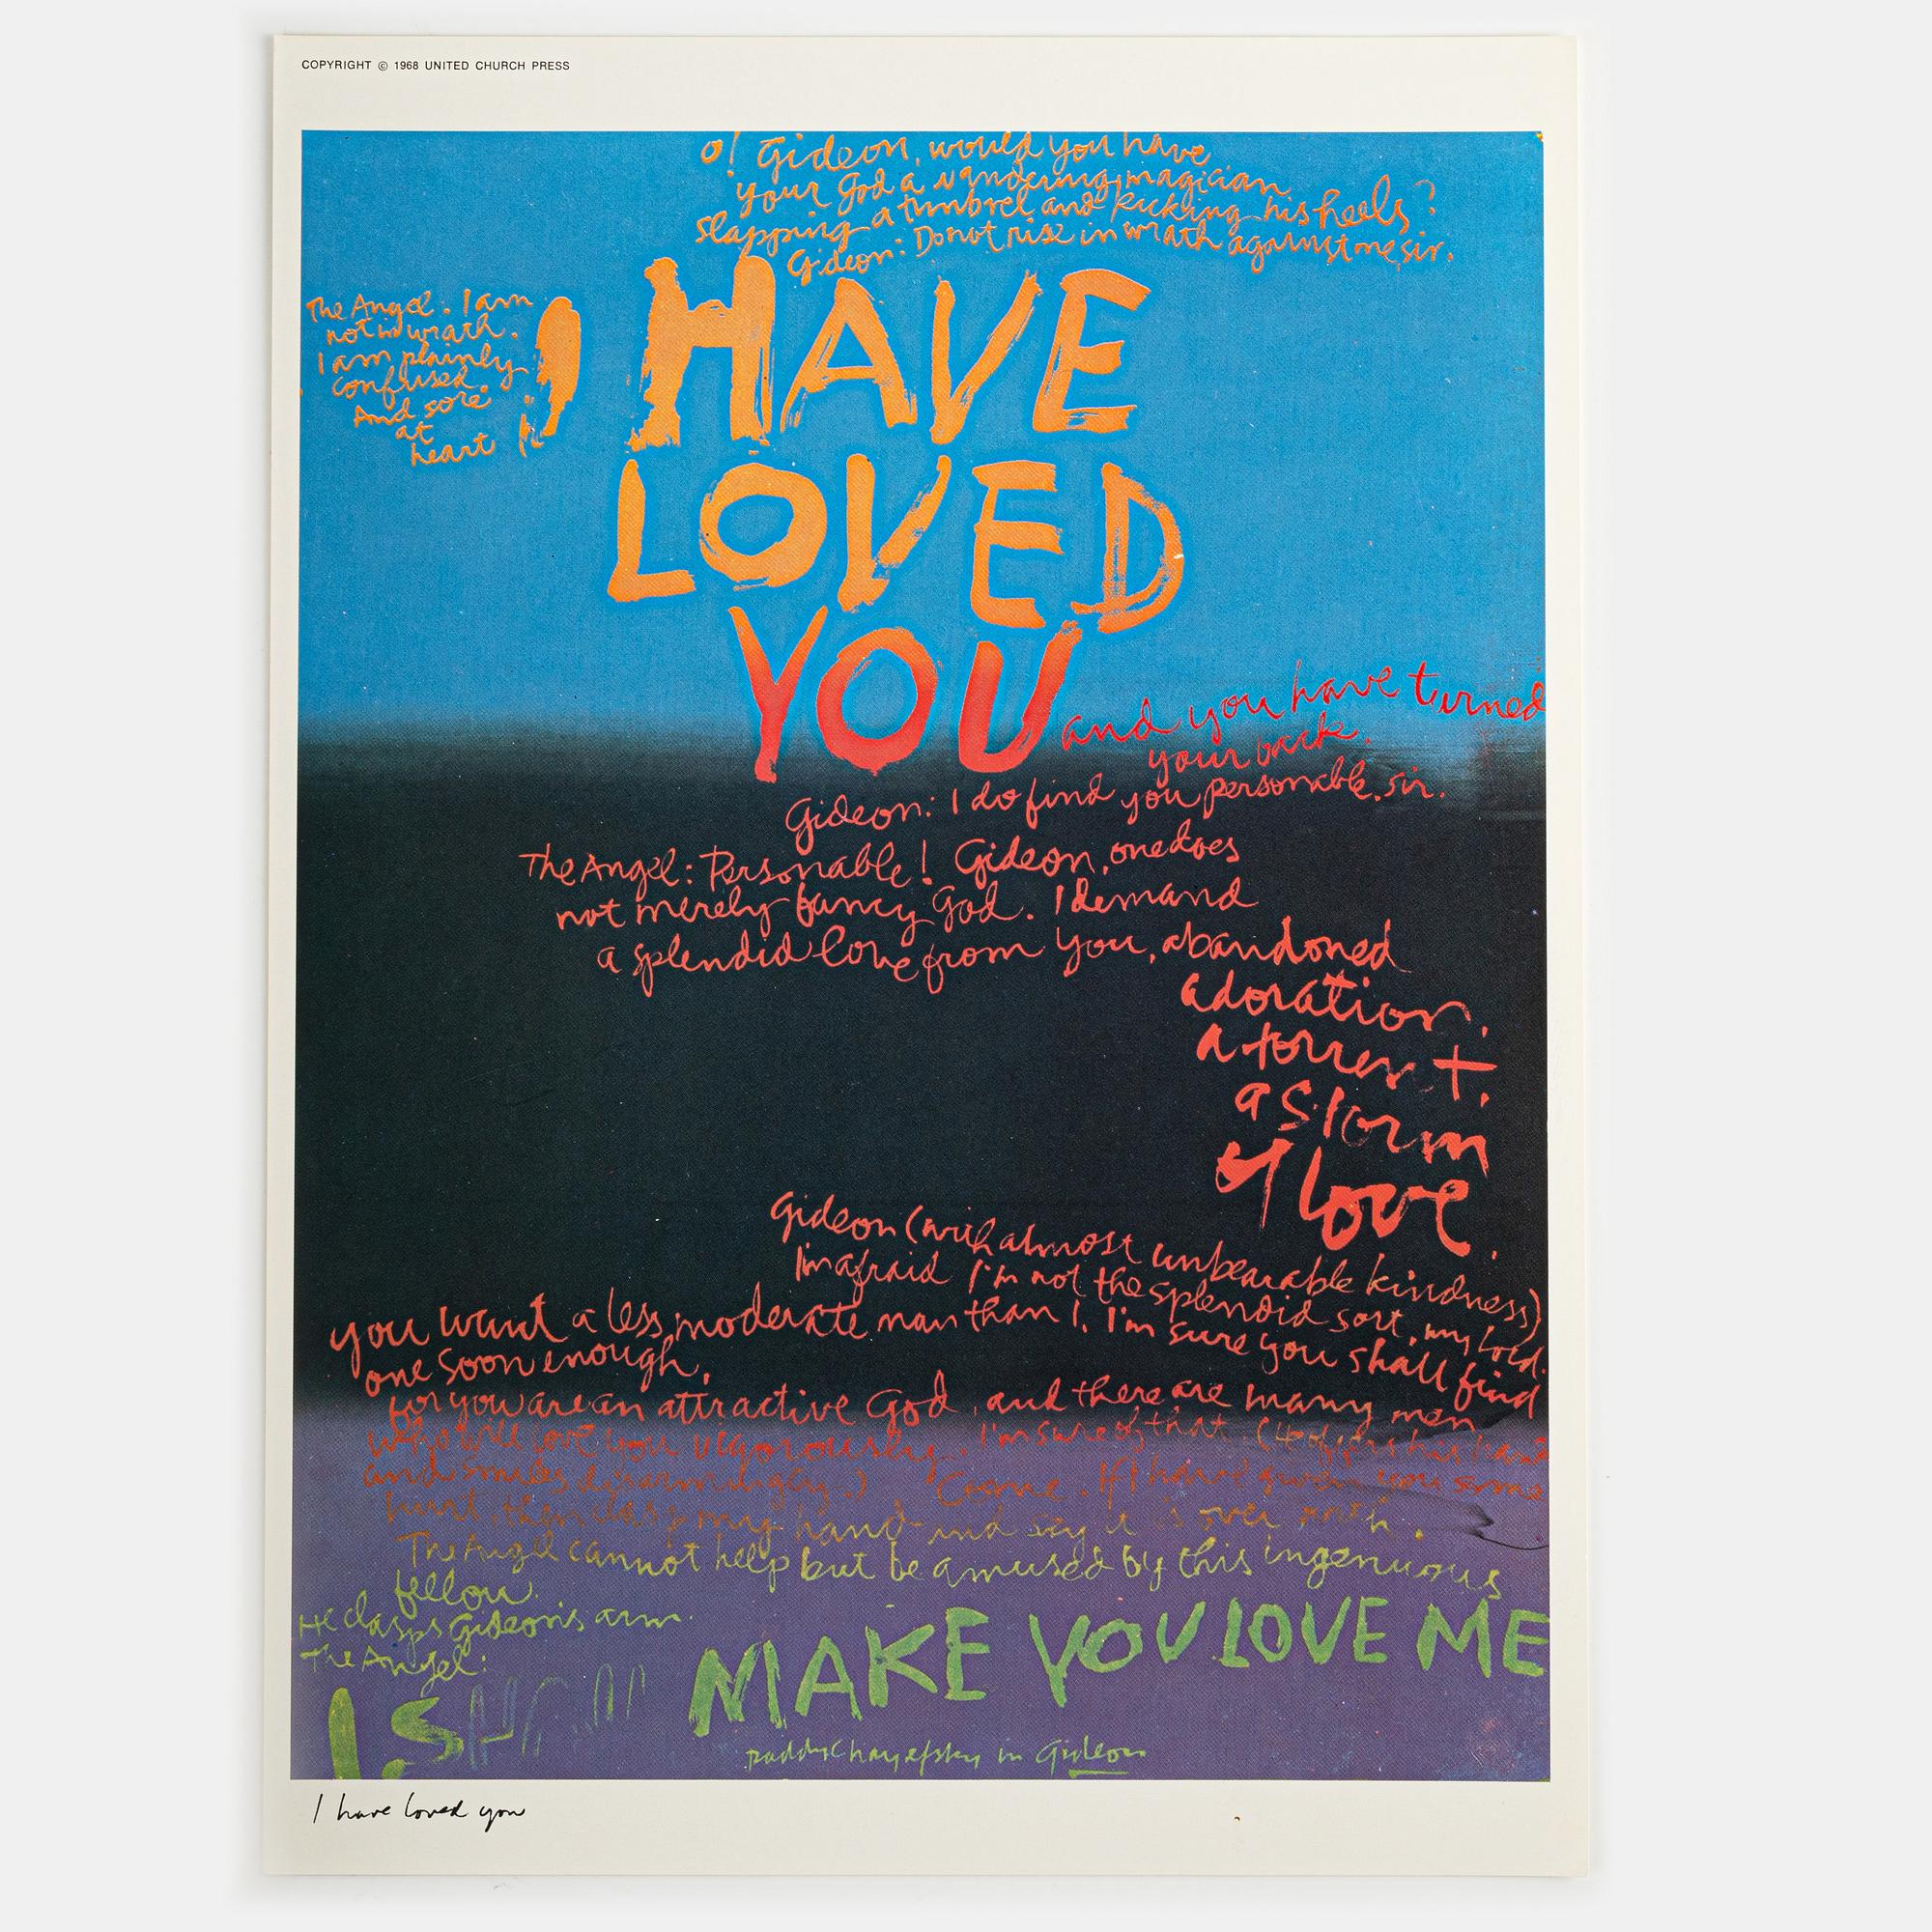 COPYRIGHT © 1968 UNITED CHURCH PRESS
O! Gideon, would you have
your God a wandering magician
slapping a timbrel and kicking his heels?
Gideon: Do not rise in wrath against me, sir.
The Angel: I am
not in wrath.
I am plainly
confused.
And sore
at
heart
I HAVE
LOVED
YOU
and you have turned
your back.
Gideon: I do find you personable, sir.
The Angel: Personable! Gideon, one does
not merely fancy God. I demand
a splendid love from you, abandoned
adoration,
a torrent,
a storm
of love.
Gideon (with almost unbearable kindness)
I'm afraid I'm not the splendid sort, my Lord.
you want a less moderate man than I. I'm sure you shall find
one soon enough,
for you are an attractive God, and there are many men
who will love you vigorously. I'm sure of that. (He offers his hand
and smiles disarmingly.) Come. If I have given you some
hurt, then clasp my hand and say it is over with.
The Angel cannot help but be amused by this ingenuous
fellow.
He clasps Gideon's arm.
The Angel:
I. SHALL
MAKE YOU LOVE ME
paddy Chayefsky in Gideon
I have loved you